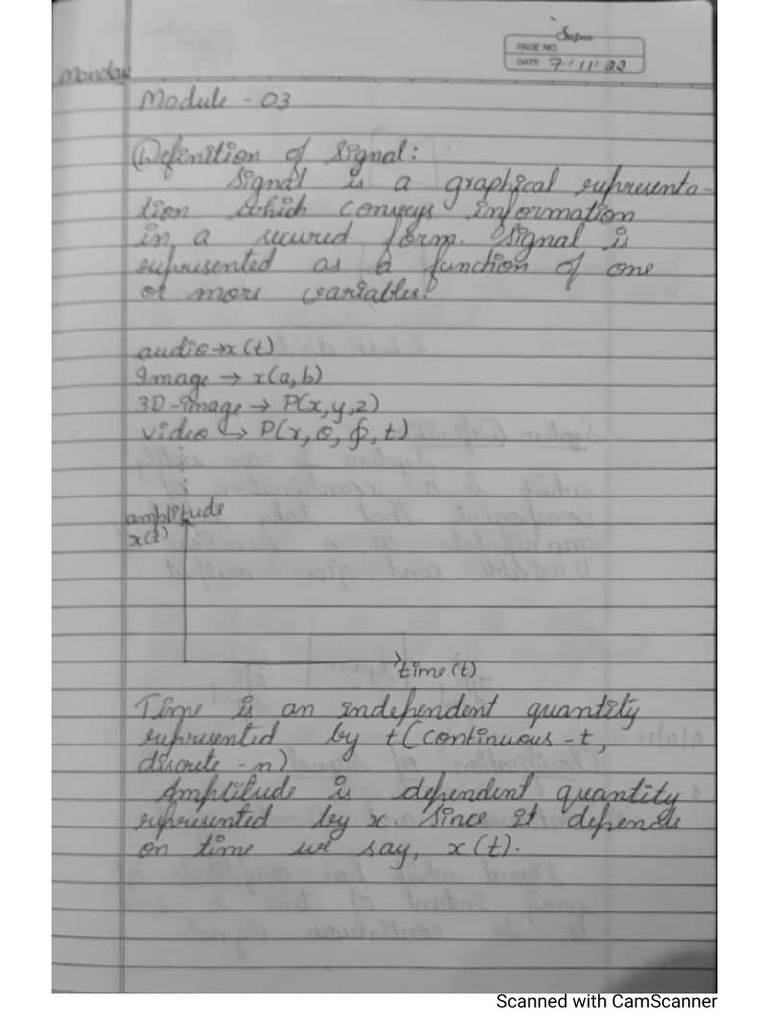 Sapna
PAGE NO
DATE 7/11/22
Monday
Module - 03
Definition of Signal:
Signal is a graphical representa-
tion which conveys information
in a secured form. Signal is
represented as a function of one
or more variables.
audio → x(t)
Image → x(a,b)
3D-image → P(x,y,z)
video → P(r, θ, φ, t)
amplitude
x(t)
time(t)
Time is an independent quantity
represented by t(continuous - t,
discrete - n)
Amplitude is dependent quantity
represented by x. Since it depends
on time we say, x(t).
Scanned with CamScanner